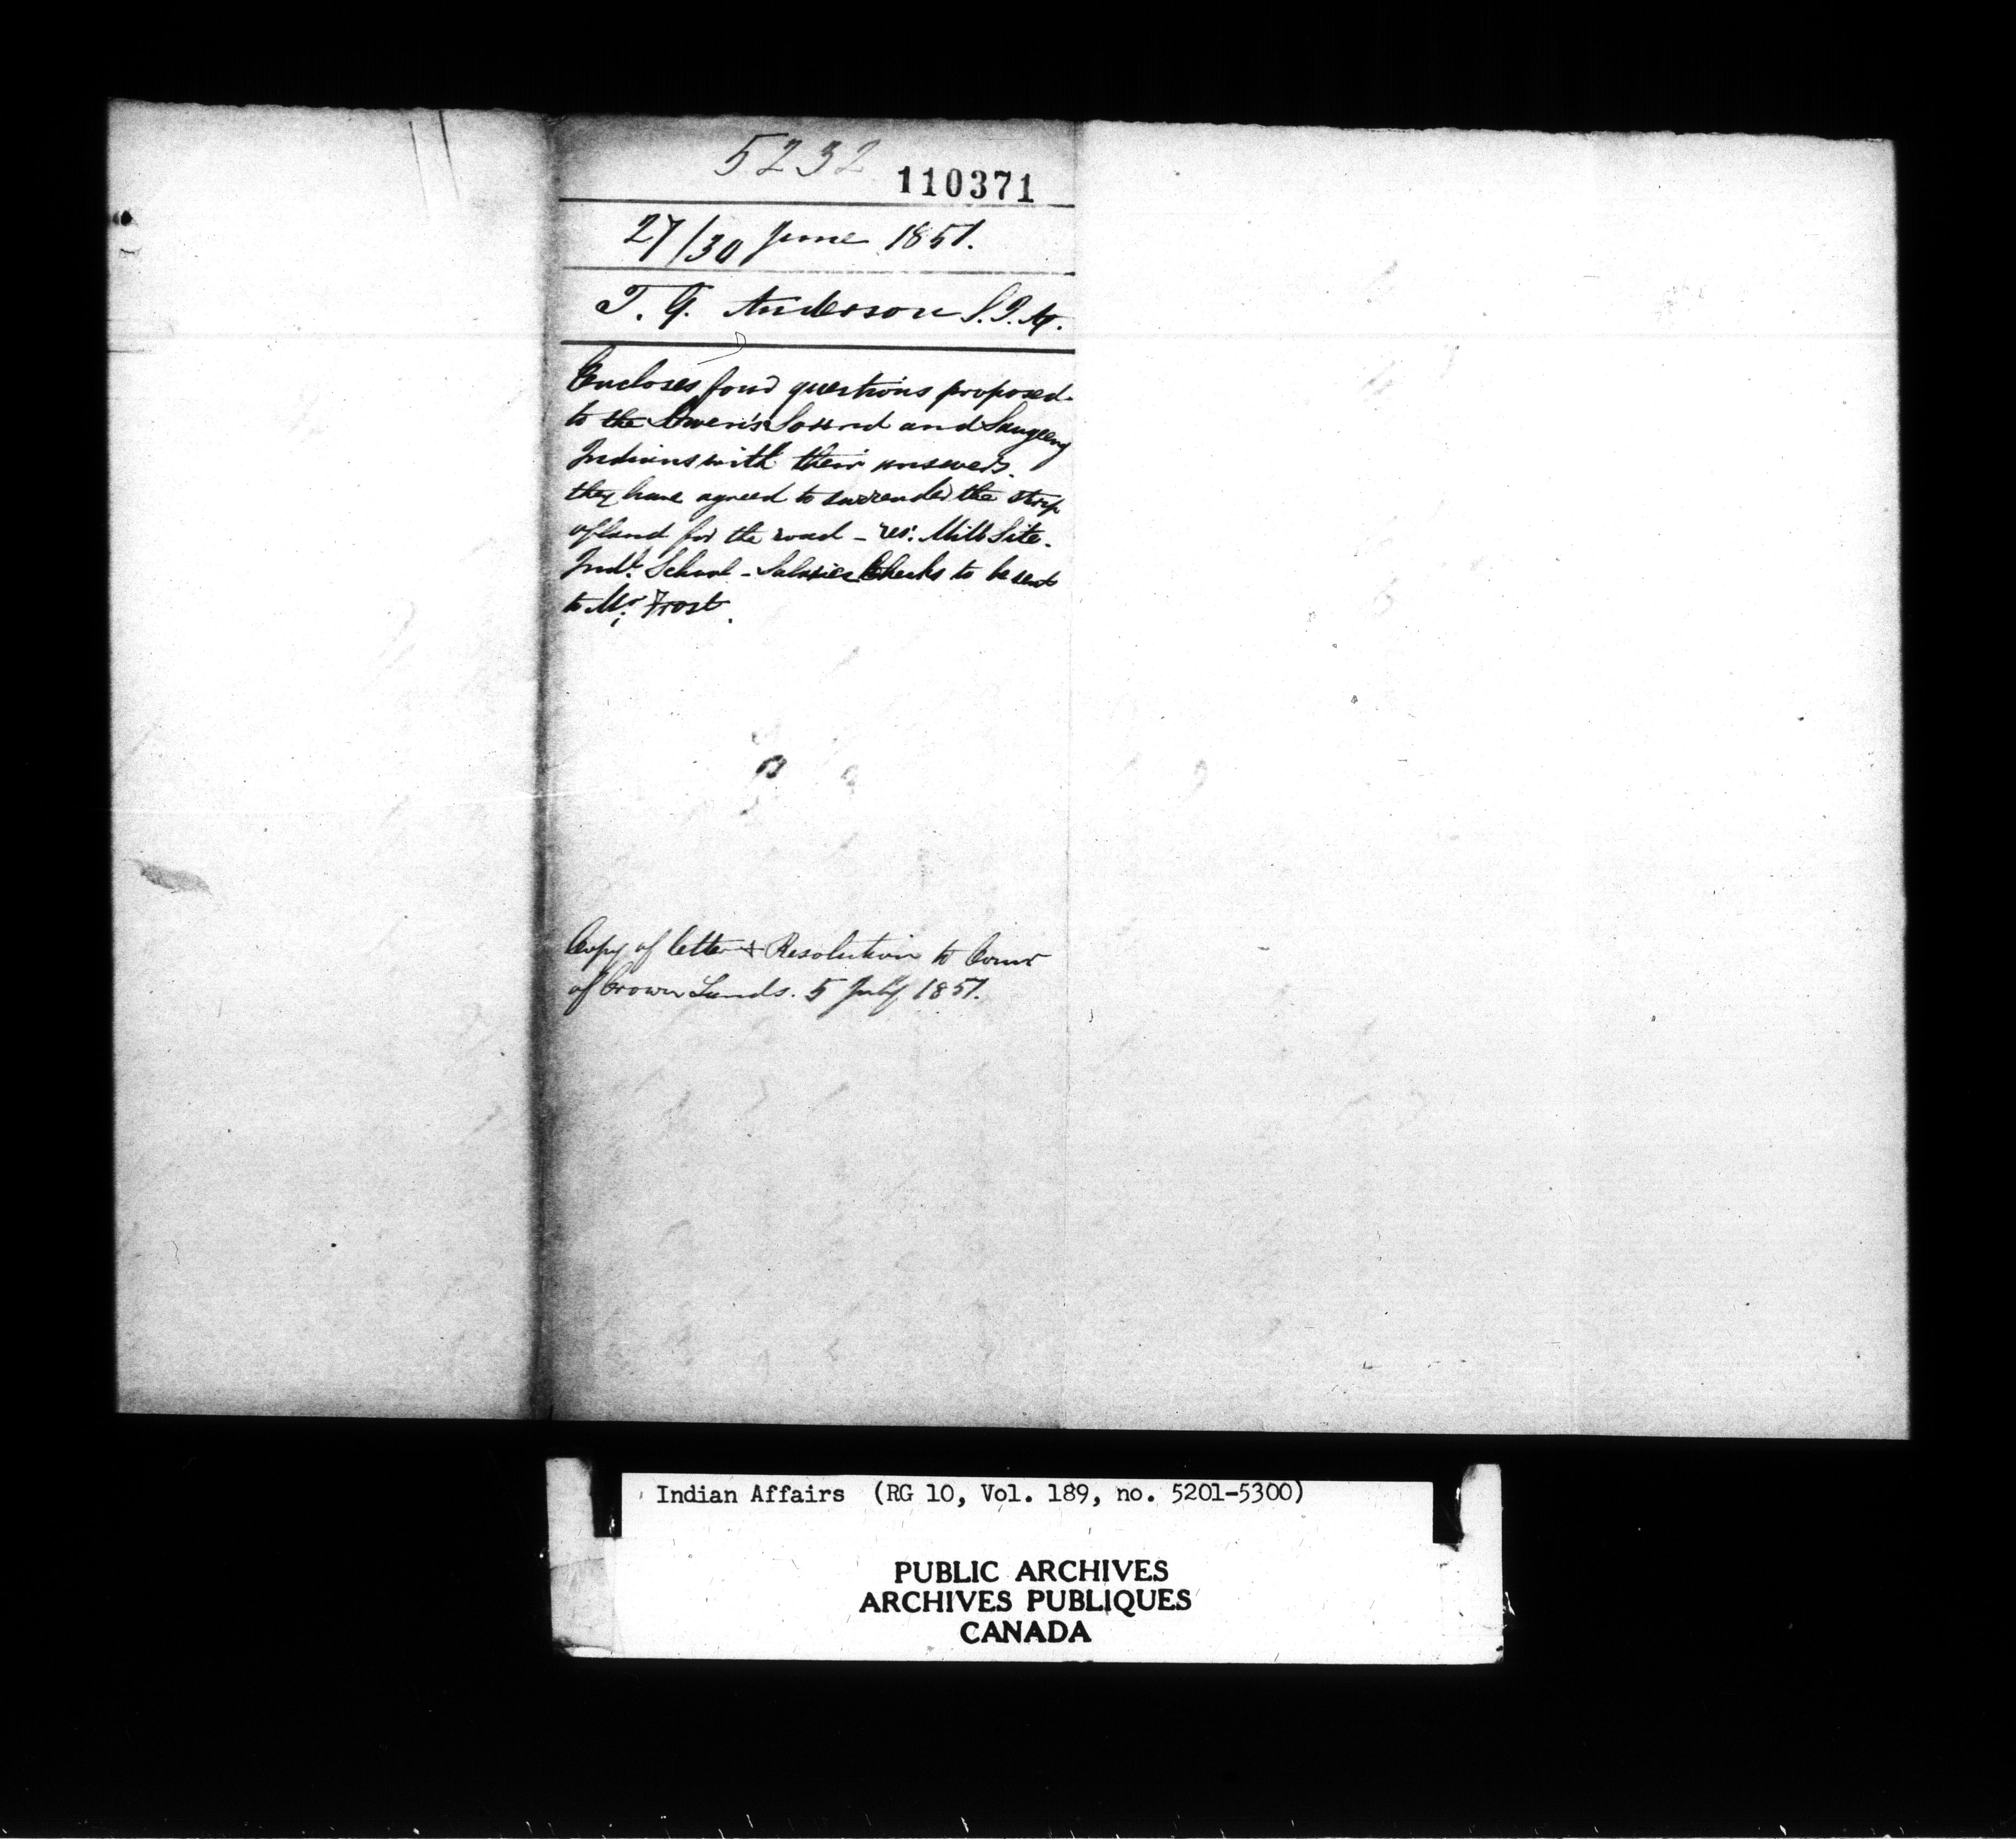 5232
110371
27/30 June 1851.
T. G. Anderson S.I.A.
Encloses four questions proposed
to the Owen's Sound and Saugeeng
Indians with their answers.
they have agreed to surrender the strip
of land for the road - res: Mill Site -
Indl. School - Salaries Checks to be sent
to Mr. Frost.
Copy of letter & Resolution to Comr
of Crown Lands. 5 July 1851.
Indian Affairs (RG 10, Vol. 189, no. 5201-5300)
PUBLIC ARCHIVES
ARCHIVES PUBLIQUES
CANADA